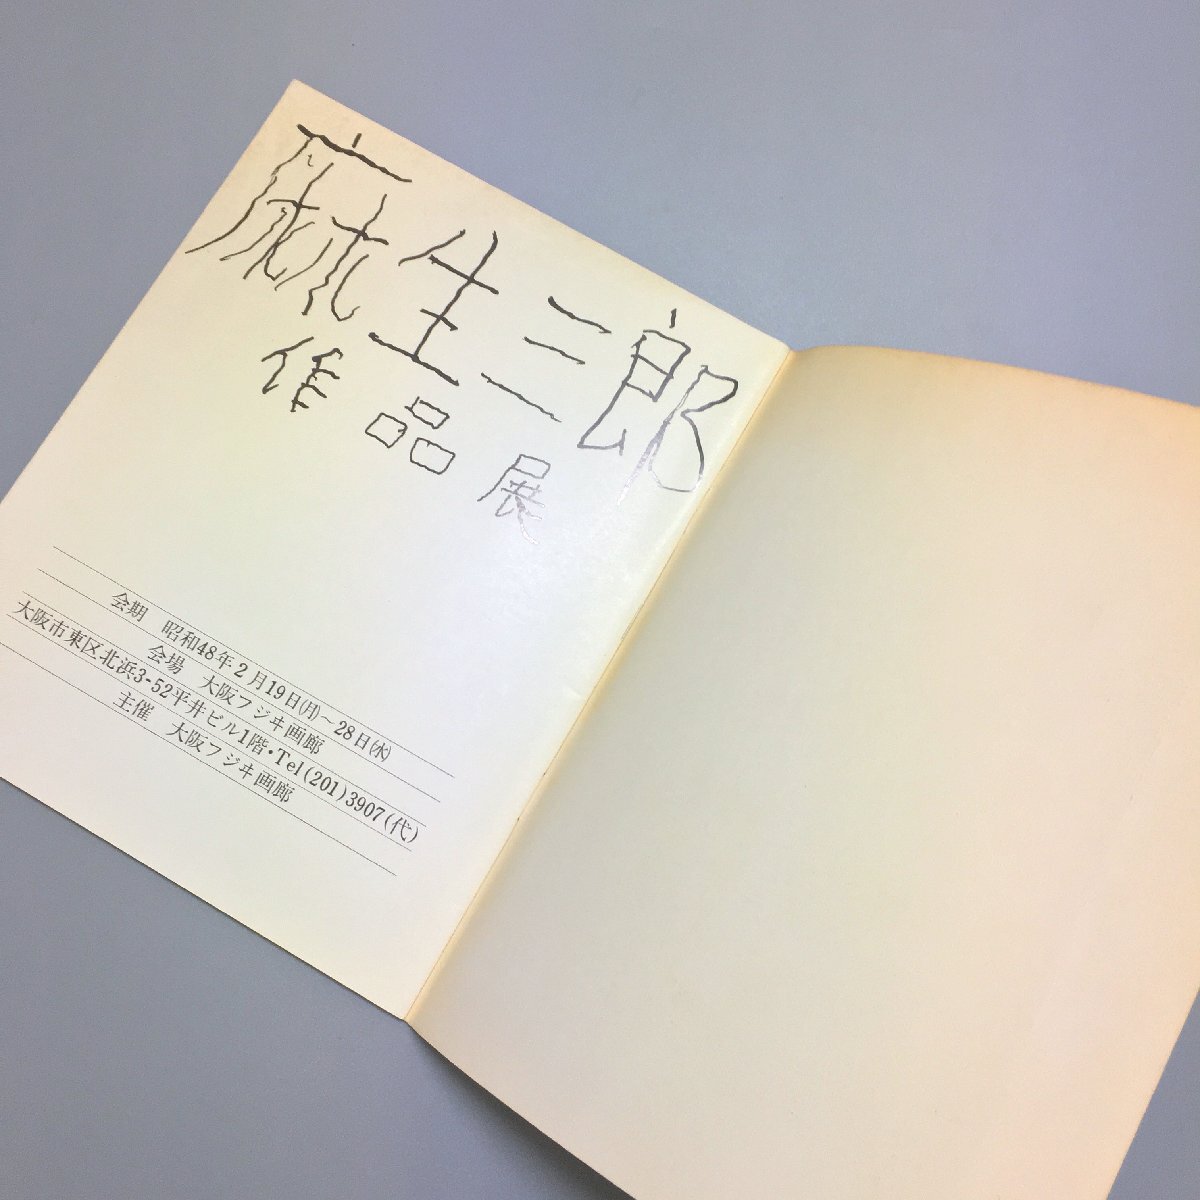 麻生三郎
作品展
会期 昭和48年2月19日(月)～28日(水)
会場 大阪フジヰ画廊
大阪市東区北浜3-52平井ビル1階・Tel(201)3907(代)
主催 大阪フジヰ画廊